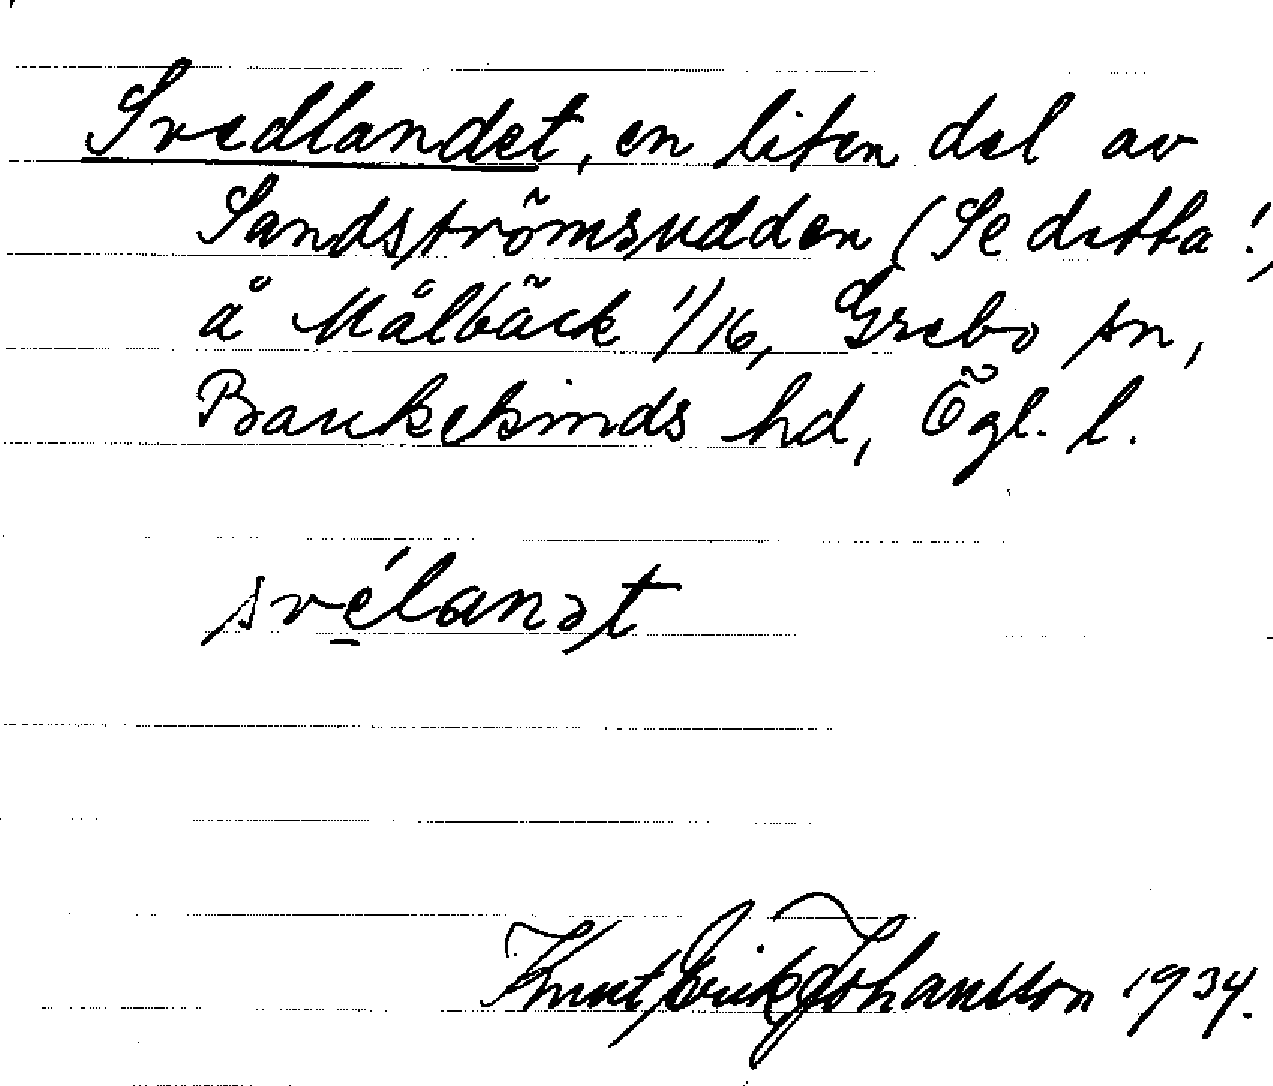 Svedlandet, en liten del av
Sandströmsudden (Se detta!)
å Målbäck 1/16, Grebo sn,
Bankekinds hd, Ögl. l.
svélanət
Knut Erik Johansson 1934.